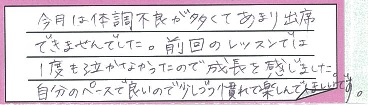 今月は体調不良が多くてあまり出席
できませんでした。前回のレッスンでは
1度も泣かなかったので成長を感じました。
自分のペースで良いので少しづつ慣れて楽しんでほしいです。